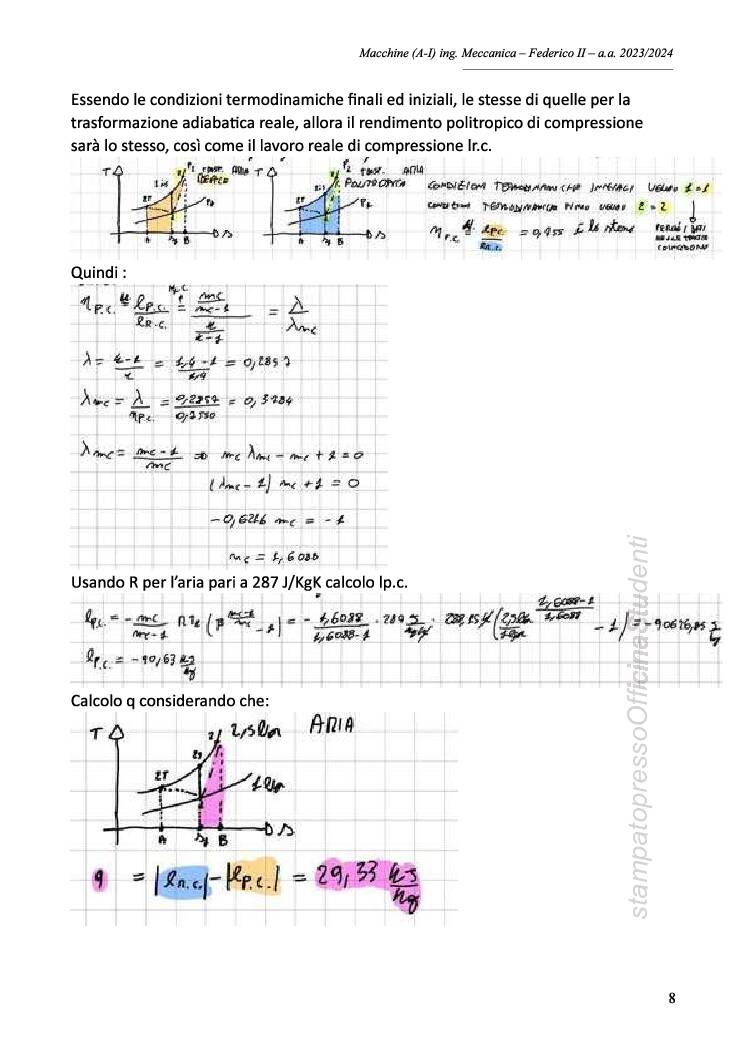 Macchine (A-I) ing. Meccanica – Federico II – a.a. 2023/2024
Essendo le condizioni termodinamiche finali ed iniziali, le stesse di quelle per la
trasformazione adiabatica reale, allora il rendimento politropico di compressione
sarà lo stesso, così come il lavoro reale di compressione lr.c.
T P2 ARIA T P2 ARIA
POLITROPICA
A B s A B s
CONDIZIONI TERMODINAMICHE INIZIALI UGUALI 1 = 1
CONDIZIONI TERMODINAMICHE UGUALI 2 = 2
η P.C. = lP.C. / lR.C. = 0,755 è lo stesso
Quindi :
η P.C. = lP.C. / lR.C. = mc / mc-1 / k / k-1 = λ / λmc
λ = k-1 / k = 1,4-1 / 1,4 = 0,2857
λmc = λ / ηP.C. = 0,2857 / 0,7550 = 0,3784
λmc = mc-1 / mc ⇒ mc λmc - mc + 1 = 0
(λmc - 1) mc + 1 = 0
-0,6216 mc = -1
mc = 1,6088
Usando R per l’aria pari a 287 J/KgK calcolo lp.c.
lP.C. = - mc / mc-1 RT1 (β mc-1 / mc - 1) = - 1,6088 / 1,6088-1 · 287 J / kgK · 288,15 K (2,5 bar / 1 bar 1,6088-1 / 1,6088 - 1) = -90626,85 J / kg
lP.C. = -90,63 kJ / kg
Calcolo q considerando che:
T 2,5 bar ARIA
1 bar
A B s
q = |lR.C.| - |lP.C.| = 29,33 kJ / kg
stampatopressoOfficinaStudenti
8